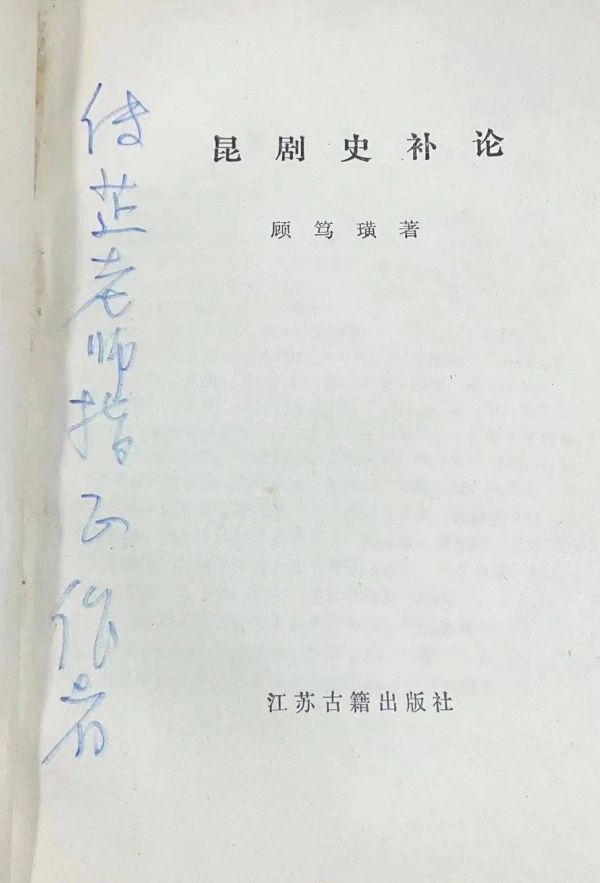 昆剧史补论
顾笃璜著
江苏古籍出版社
传芷老师指正 作者